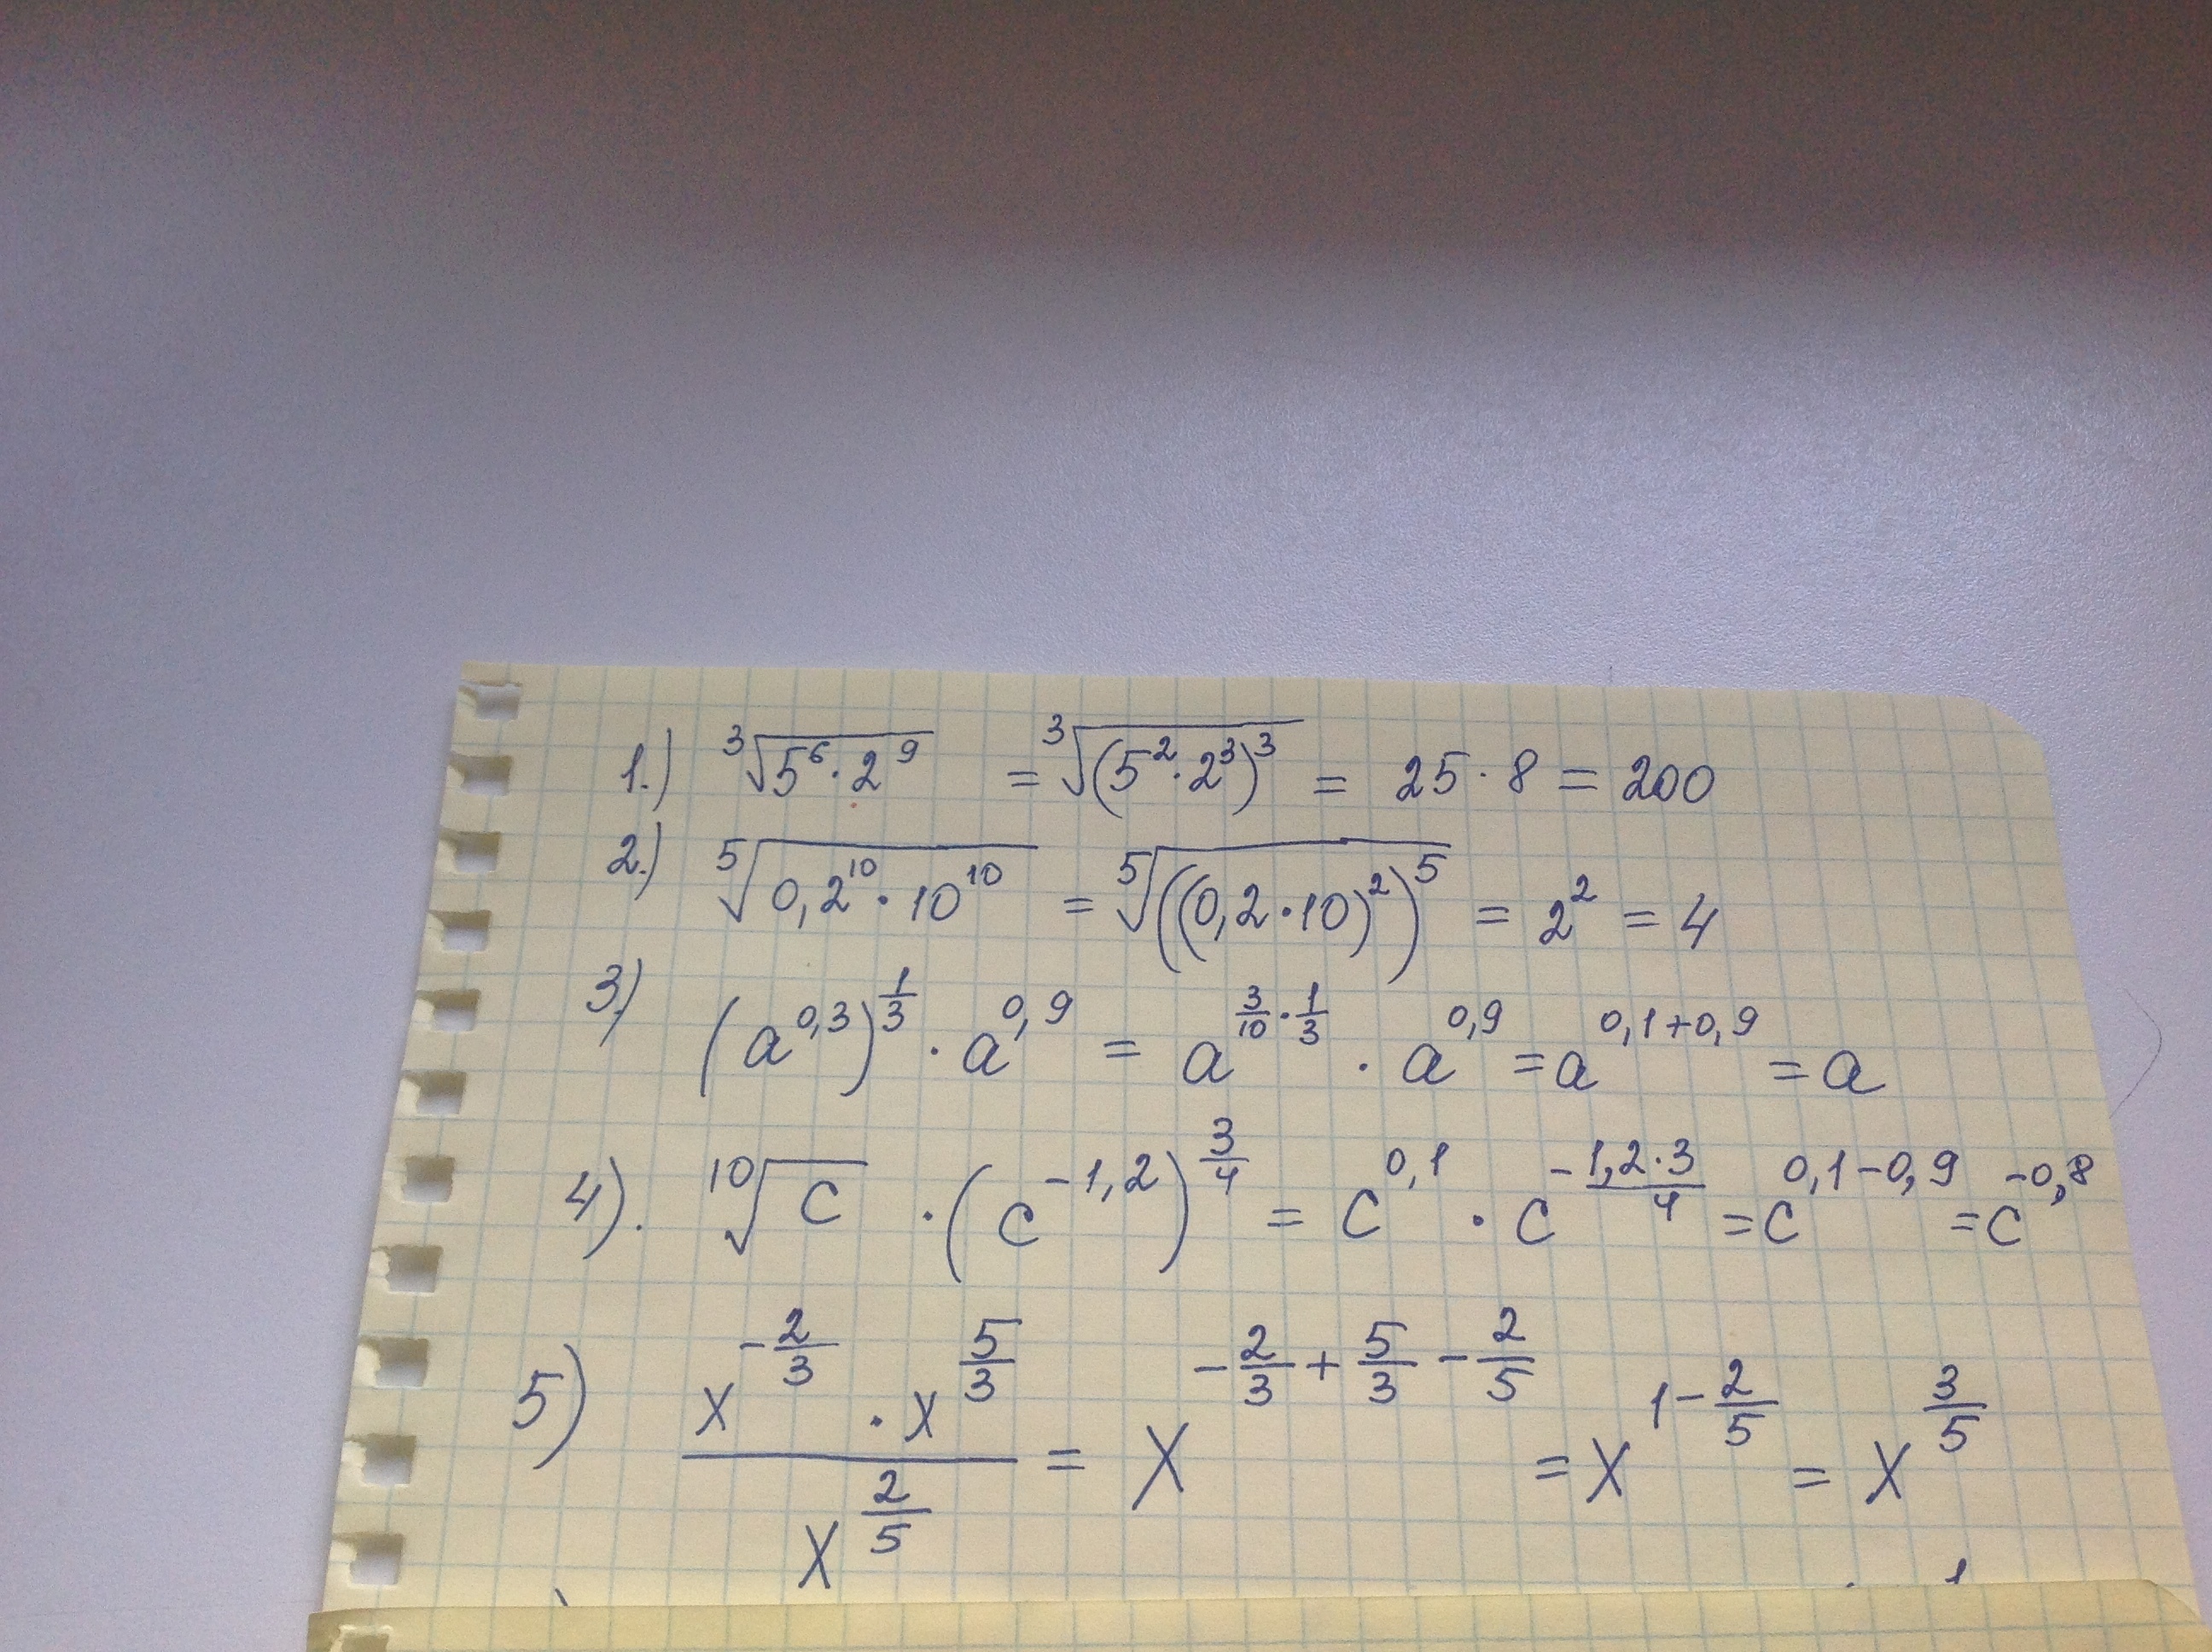 1.) ∛(5⁶·2⁹) = ∛((5²·2³)³) = 25·8 = 200
2.) ⁵√(0,2¹⁰·10¹⁰) = ⁵√(((0,2·10)²)⁵) = 2² = 4
3.) (a^0,3)^(1/3) · a^0,9 = a^(3/10·1/3) · a^0,9 = a^(0,1+0,9) = a
4). ¹⁰√c · (c^(-1,2))^(3/4) = c^0,1 · c^(-(1,2·3)/4) = c^(0,1-0,9) = c^(-0,8)
5) (x^(-2/3) · x^(5/3))/(x^(2/5)) = x^(-2/3+5/3-2/5) = x^(1-2/5) = x^(3/5)